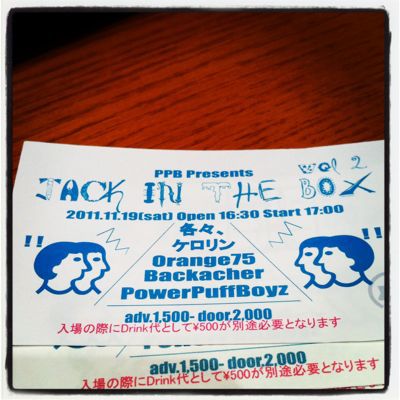 PPB Presents
JACK IN THE BOX vol 2
2011.11.19(sat) Open 16:30 Start 17:00
各々、
ケロリン
Orange75
Backacher
PowerPuffBoyz
!!
!!
adv.1,500- door.2,000
入場の際にDrink代として¥500が別途必要となります
adv.1,500- door.2,000
入場の際にDrink代として¥500が別途必要となります